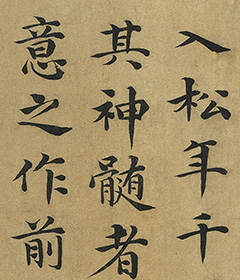 入松年千
其神髓者
意之作前